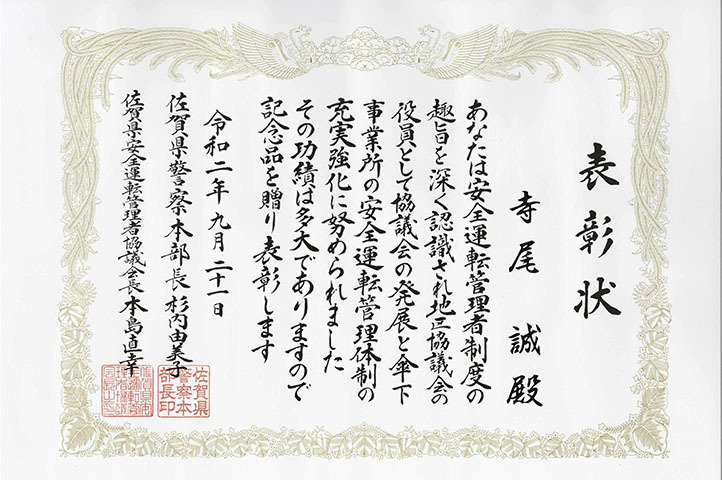 表彰状
寺尾 誠 殿
あなたは安全運転管理者制度の
趣旨を深く認識され地区協議会の
役員として協議会の発展と傘下
事業所の安全運転管理体制の
充実強化に努められました
その功績は多大でありますので
記念品を贈り表彰します
令和二年九月二十一日
佐賀県警察本部長 杉内由美子
佐賀県安全運転管理者協議会長 本島直幸
佐賀県
警察本
部長印